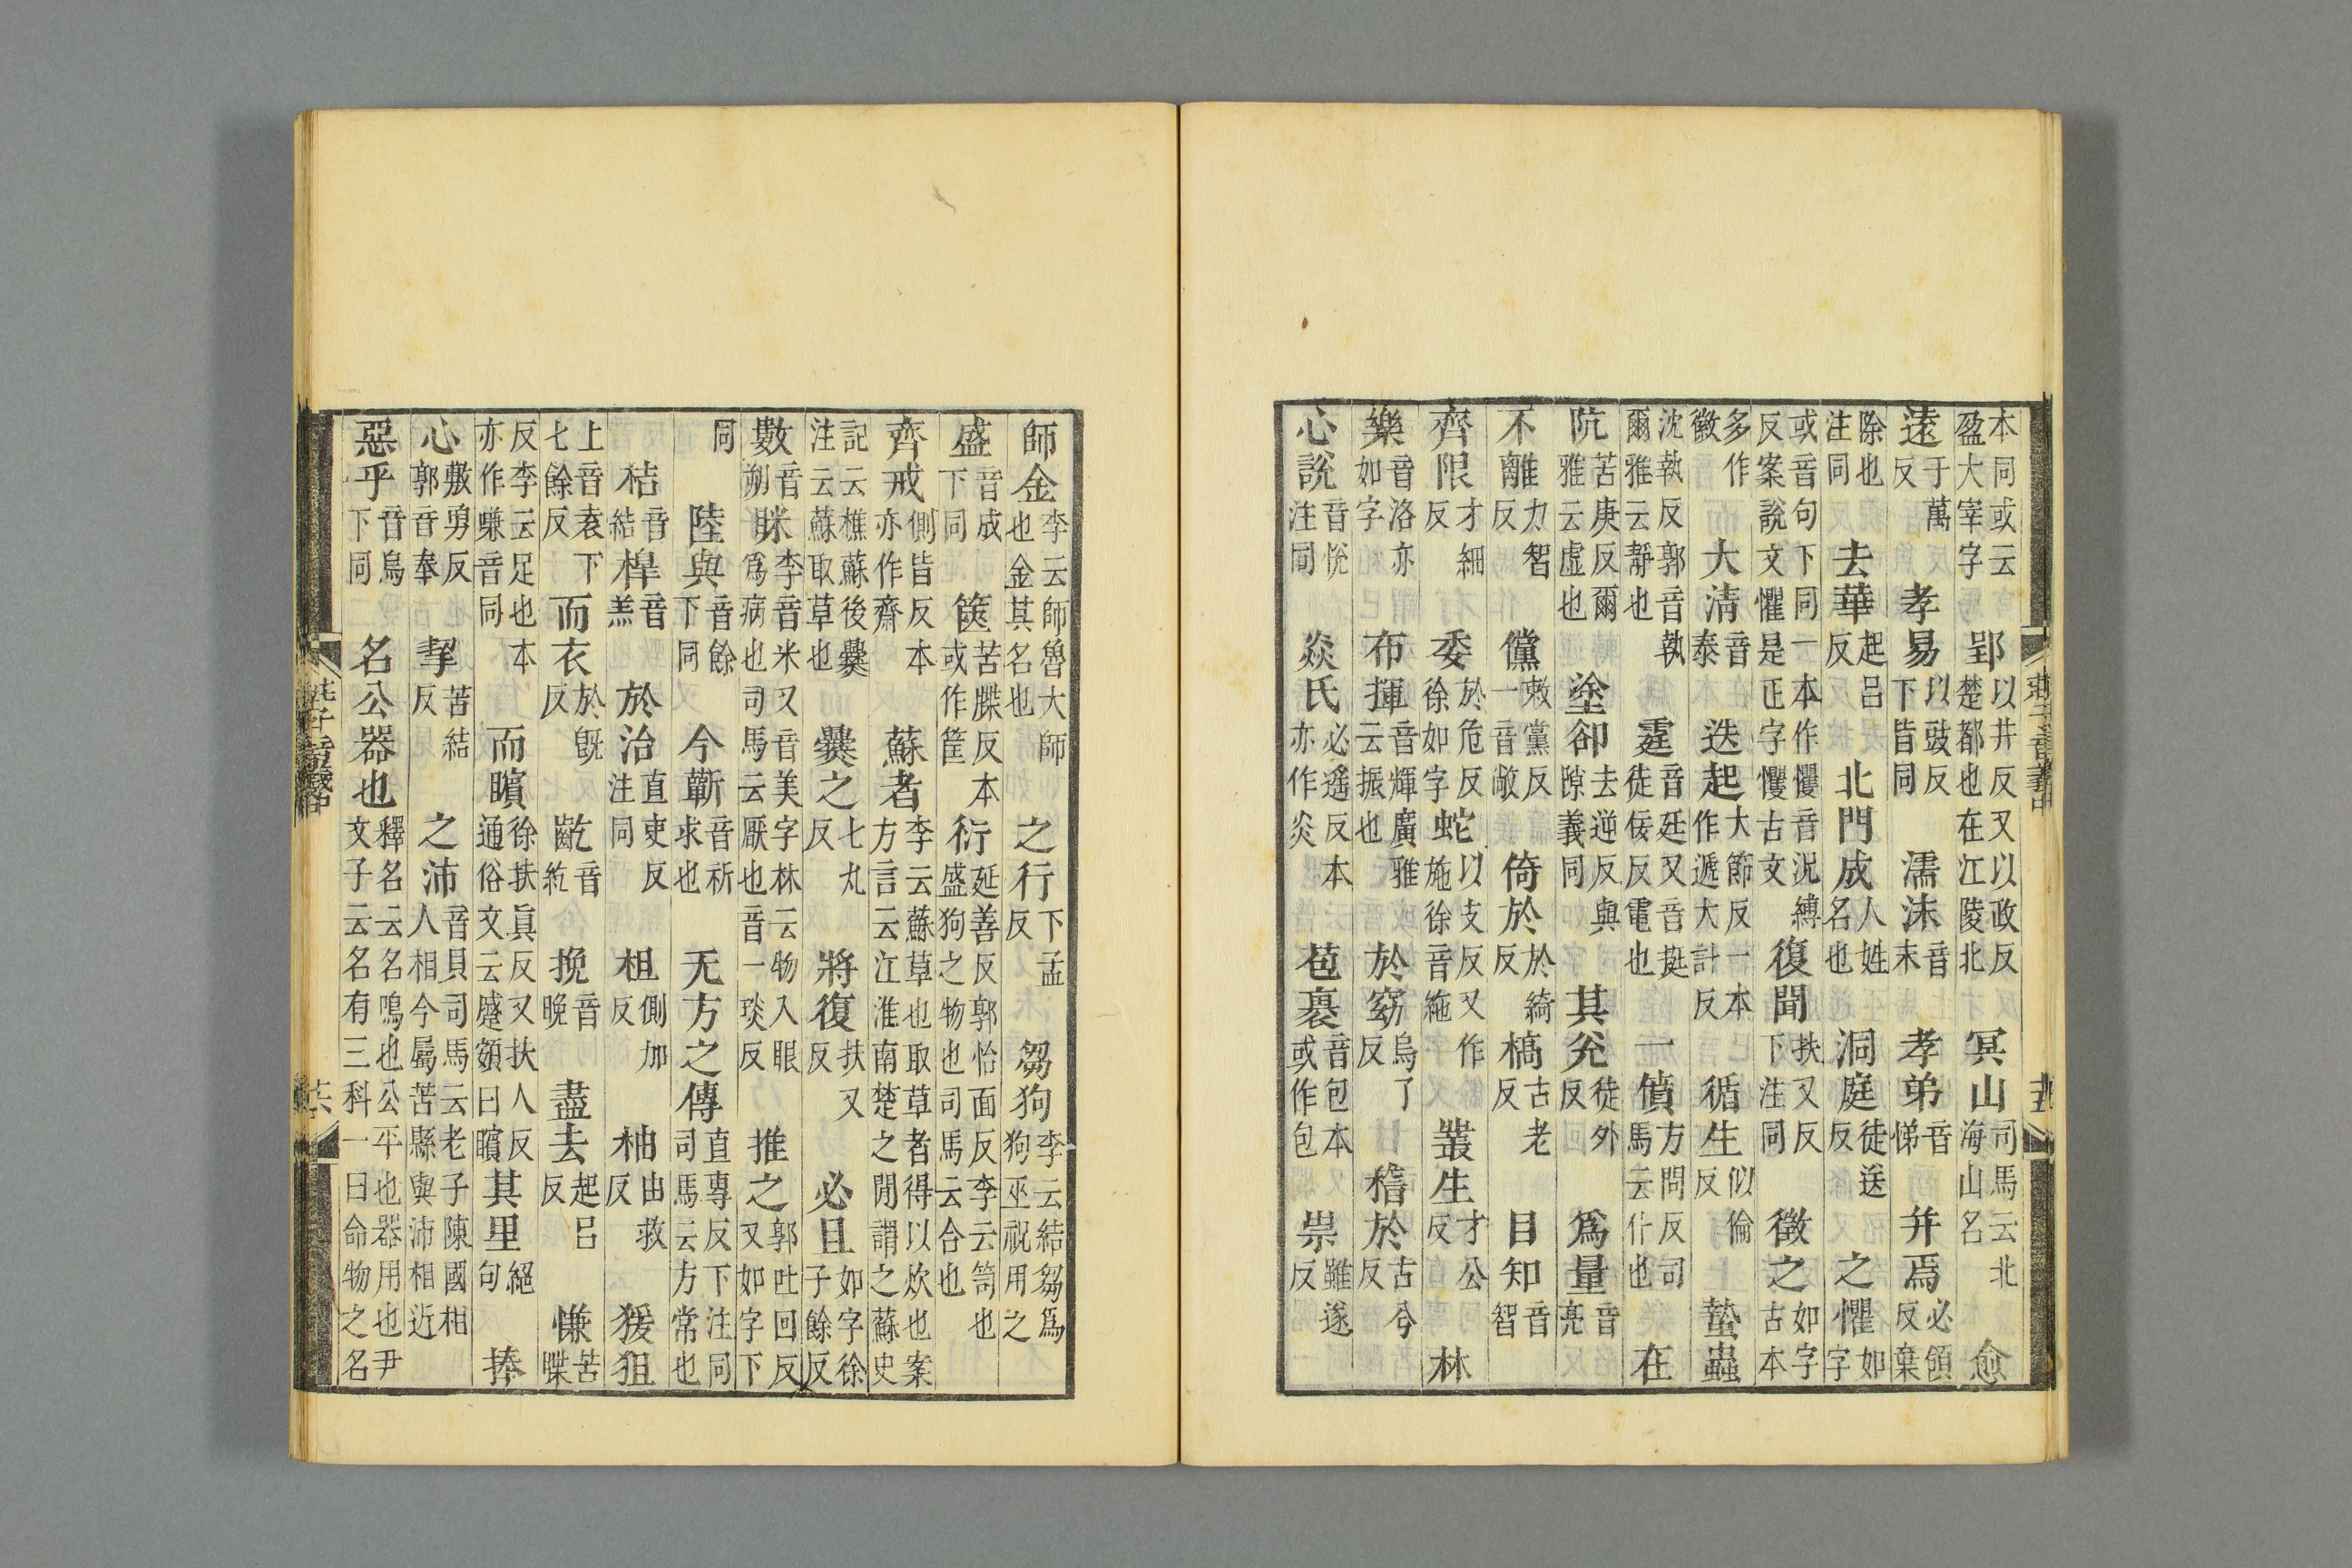 本同或云盈大宰字 郢以井反又以政反楚都也在江陵北 冥山司馬云北海山名 愈
遠于萬反 孝易以豉反下皆同 濡沫音末 孝弟音悌 并焉必領反棄
除也注同 去華起呂反 北門成人姓名也 洞庭徒送反 之懼如字
或音句下同一本作戄音況縛反案說文懼是正字戄古文 復聞扶又反下注同 徵之如字古本
多作徽 大清音泰 迭起大節反一本作遞大計反 循生似倫反 蟄蟲
沈執反郭音執爾雅云靜也 霆音廷又音挺徒佞反電也 一僨方問反司馬云仆也 在
阬苦庚反爾雅云虛也 塗卻去逆反與隙義同 其兊徒外反 爲量音亮
不離力智反 儻敕黨反一音敞 倚於於綺反 槁古老反 目知音智
齊限才細反 委於危反徐如字 蛇以支反又作施徐音絁 叢生才公反 林
樂音洛亦如字 布揮音輝廣雅云振也 於窈烏了反 稽於古兮反
心說音悅注同 焱氏必遙反本亦作炎 苞裹音包本或作包 祟雖遂反
師金李云師魯大師也金其名也 之行下孟反 芻狗李云結芻爲狗巫祝用之
盛音成下同 篋苦牒反本或作筐 衍延善反郭怡面反李云笥也盛狗之物也司馬云合也
齊戒側皆反本亦作齋 蘇者李云蘇草也取草者得以炊也案方言云江淮南楚之閒謂之蘇史
記云樵蘇後爨注云蘇取草也 爨之七丸反 將復扶又反 必且如字徐子餘反
數音朔 眯李音米又音美字林云物入眼爲病也司馬云厭也音一琰反 推之郭吐回反又如字下
同 陸與音餘下同 今蘄音祈求也 无方之傳直專反下注同司馬云方常也
桔音結 槹音羔 於治直吏反注同 柤側加反 柚由救反 猨狙
上音袁下七餘反 而衣於旣反 齕音紇 挽音晚 盡去起呂反 慊苦牒
反李云足也本亦作嗛音同 而矉徐扶眞反又扶人反通俗文云蹙頞曰矉 其里絕句 捧
心敷勇反郭音奉 挈苦結反 之沛音貝司馬云老子陳國相人相今屬苦縣與沛相近
惡乎音烏下同 名公器也釋名云名鳴也公平也器用也尹文子云名有三科一曰命物之名
莊子音義中
莊子音義中